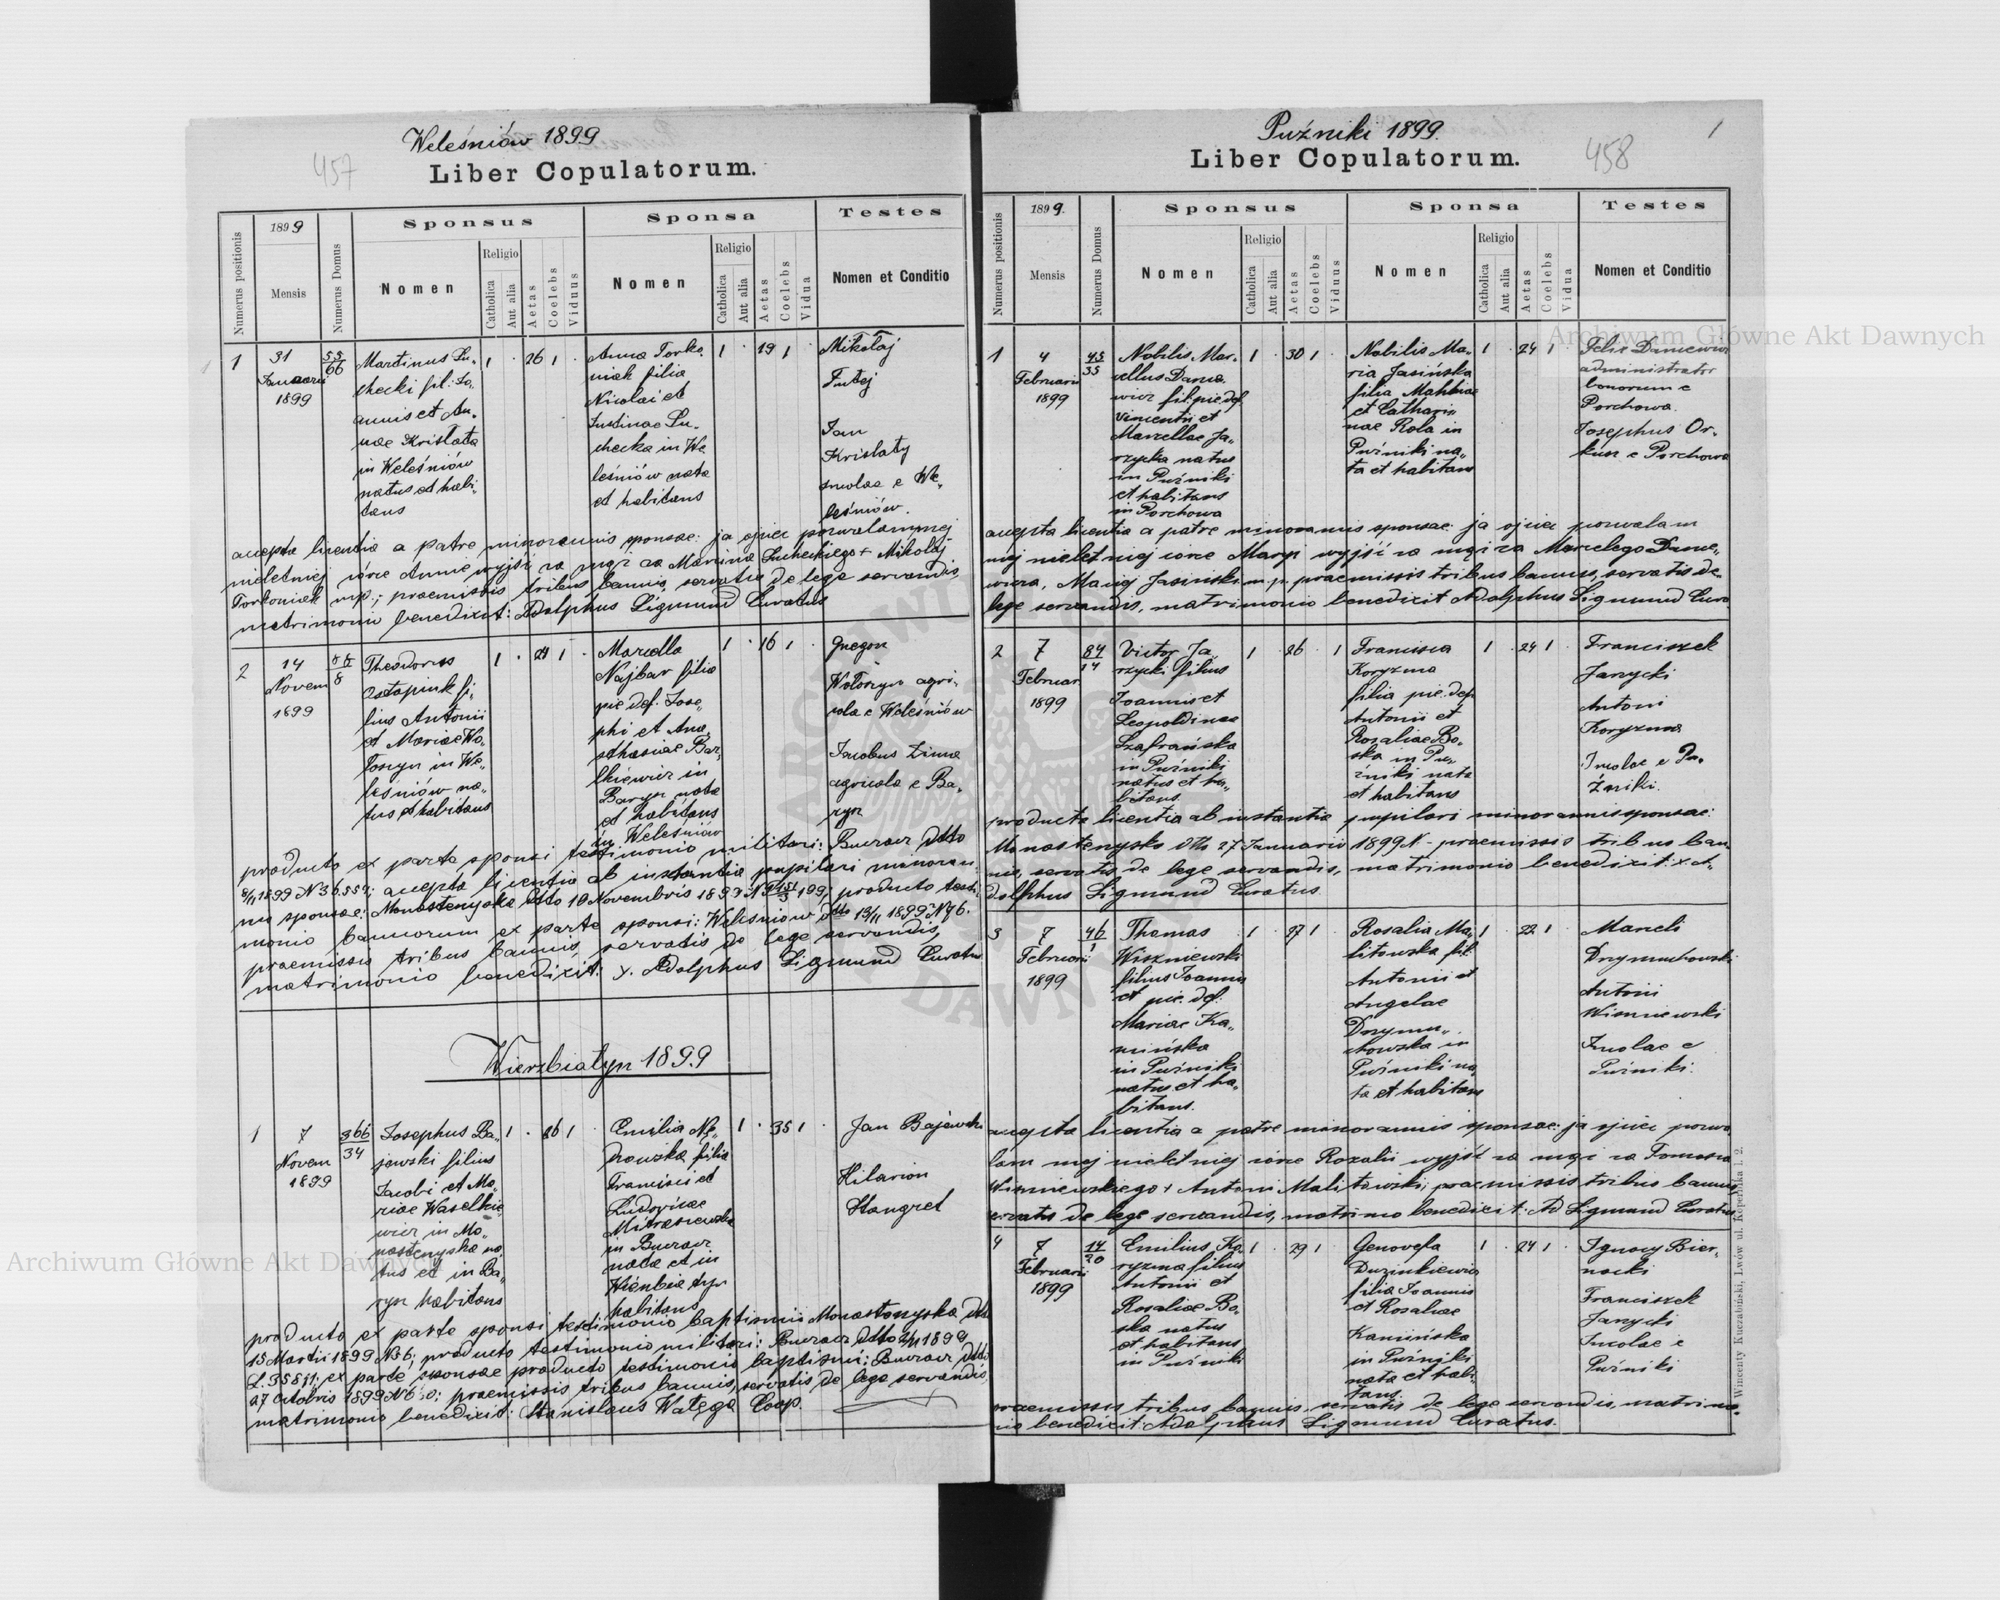 Weleśniów 1899
457
Liber Copulatorum.
Numerus positionis
1899
Mensis
Numerus Domus
Sponsus
Nomen
Religio
Catholica
Aut alia
Aetas
Coelebs
Viduus
Sponsa
Nomen
Religio
Catholica
Aut alia
Aetas
Coelebs
Vidua
Testes
Nomen et Conditio
1
31
Januarii
1899
55
66
Martinus Lu-
checki fil: Jo,
annis et An-
nae Kristata
in Weleśniów
natus et habi-
tans
1 . 26 1
Anna Torko,
niak filia
Nicolai et
Justinae Lu-
checka in We
leśniów nata
et habitans
1 . 19 1
Mikołaj
Tutej
Jan
Kristaty
incolae e We,
leśniów.
accepta licentia a patre minorennis sponsae: ja ojciec pozwalam mej
nieletniej córce Annie wyjść za mąż za Marcina Łucheckiego + Mikołaj
Torkoniak mp; praemissis tribus bannis, servatis de lege servandis,
matrimonio benedixit: Adolphus Zigmund Curatus
2
14
Novem
1899
8
Theodorus
Ostapiuk fi-
lius Antonii
et Mariae Wo,
łoszyn in We-
leśniów na-
tus et habitans
1 . 24 1
Marcella
Najbar filia
pie def. Jose,
phi et Ana-
sthasiae Bar,
lkiewicz in
Barysz nata
et habitans
in Weleśniów
1 . 16 1
Gregor
Wołoszyn agri-
cola e Weleśniów
Jacobus Zima
agricola e Ba,
rysz
producto ex parte sponsi testimonio militari: Buczacz ddto
8/11 1899 N 36.559; accepta licentia ab instantia pupilari minoren
nis sponsae: Monasterzyska ddto 10 Novembris 1899 199; producto testi
monio bannorum ex parte sponsi: Weleśniów ddto 13/11 1899 N 96.
praemissis tribus bannis, servatis de lege servandis,
matrimonio benedixit: X. Adolphus Zigmund Curatus
Wierzbiatyn 1899
1
7
Novem
1899
366
34
Josephus Ba-
jewski filius
Jacobi et Ma,
riae Waselkie
wicz in Mo,
nasterzyska na,
tus et in Ba,
rysz habitans
1 . 26 1
Emilia Ne,
Francisci et
Ludovicae
Mitraszewska
in Buczacz
nata et in
Wierzbiatyn
habitans
1 . 35 1
Jan Bajewski
Hilarion
Stangret
producto ex parte sponsi testimonio baptismi: Monasterzyska ddto
15 Martii 1899 N 36; producto testimonio militari: Buczacz ddto 1899
L. 35851; ex parte sponsae producto testimonio baptismi: Buczacz ddto
27 Octobris 1899 N 650; praemissis tribus bannis, servatis de lege servandis,
matrimonio benedixit: Stanislaus Wałęga Coop.
Puźniki 1899.
458
1
Liber Copulatorum.
Numerus positionis
1899.
Mensis
Numerus Domus
Sponsus
Nomen
Religio
Catholica
Aut alia
Aetas
Coelebs
Viduus
Sponsa
Nomen
Religio
Catholica
Aut alia
Aetas
Coelebs
Vidua
Testes
Nomen et Conditio
1
4
Februarii
1899
45
35
Nobilis Mar-
cellus Dance,
wicz fil pie def.
Vincentii et
Marcellae Ja,
rzycka natus
in Puźniki
et habitans
in Porchowa
1 . 30 1
Nobilis Ma-
ria Jasińska
filia Mathiae
et Cathari-
nae Rola in
Puźniki na,
ta et habitans
1 . 24 1
Felix Dancewicz
administrator
bonorum e
Porchowa.
Josephus Or-
e Porchowa
accepta licentia a patre minorennis sponsae: ja ojciec pozwalam
mej nieletniej córce Maryi wyjść za mąż za Marcelego Dance,
wicza, Maciej Jasinski m.p. praemissis tribus bannis, servatis de
lege servandis, matrimonio benedixit Adolphus Zigmund Cura
2
7
Februar
1899
84
14
Victor Ja,
rzycki filius
Joannis et
Leopoldinae
Szafrańska
in Puźniki
natus et ha,
bitans.
1 . 26 . 1
Francisca
Koryzma
filia pie. def.
Antonii et
Rosaliae Bo,
ska in Pu,
źniki nata
et habitans
1 . 24 1
Franciszek
Jarzycki
Antoni
Koryzma
Incolae e Pu,
źniki.
producta licentia ab instantia pupilari minorennis sponsae:
Monasterzyska ddto 27 Januarii 1899 praemissis tribus ban
nis, servatis de lege servandis, matrimonio benedixit: X A-
dolphus Zigmund Curatus.
3
7
Februarii
1899
46
1
Thomas
Wiszniewski
filius Joannis
et pie. def:
Mariae Ka,
mińska
in Puźniki
natus et ha,
bitans.
1 . 27 1
Rosalia Ma,
litowska fil.
Antonii et
Angelae
Drzymu,,
in
Puźniki na,
ta et habitans
1 . 22 1
Marceli
Antoni
Wiszniewski
Incolae e
Puźniki.
accepta licentia a patre minorennis sponsae: ja ojciec pozwa
lam mej nieletniej córce Rozalii wyjść za mąż za Tomasza
Wiszniewskiego + Antoni Malitowski; praemissis tribus bannis,
servatis de lege servandis, matrimo benedixit: Ad Zigmund Curatus
4
7
Februarii
1899
14
20
Emilius Ko,
ryzma filius
Antonii et
Rosaliae Bo,
ska natus
et habitans
in Puźniki
1 . 29 1
Genovefa
Duzinkiewicz
filia Joannis
et Rosaliae
Kamińska
in Puźniki
nata et habi,
tans.
1 . 24 1
Ignacy Bier-
nacki
Franciszek
Jarzycki
Incolae e
Puźniki
praemissis tribus bannis, servatis de lege servandis, matrimo,
nio benedixit: Adolphus Zigmund Curatus.
Wincenty Kuczabiński, Lwów ul. Kopernika l. 2.
Archiwum Główne Akt Dawnych
Archiwum Główne Akt Dawnych